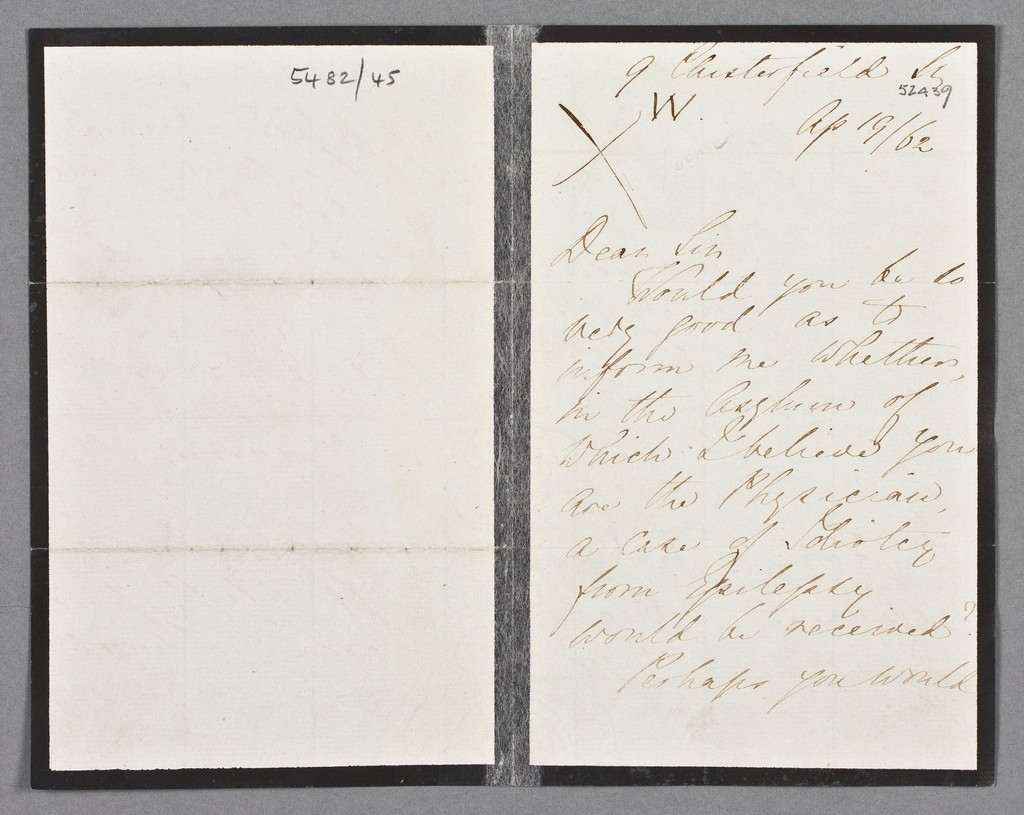 5482/45
9 Chesterfield St
52439
W.
Ap 19/62
Dear Sir
Would you be so
very good as to
inform me whether,
in the Asylum of
which I believe you
are the Physician,
a case of Idiotcy
from Epilepsy
would be received?
Perhaps you would